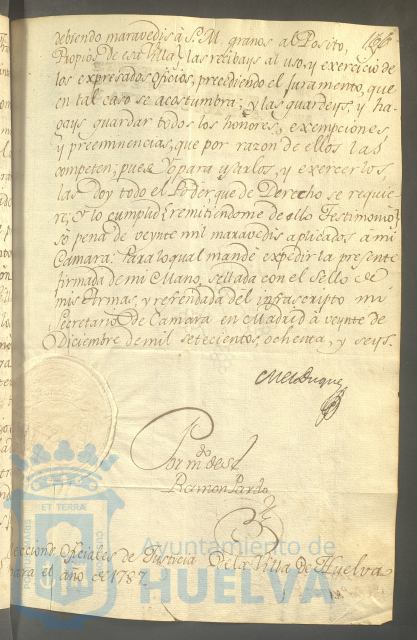 debiendo maravedis à S. M. granos al Posito,
Propios de esa Villa, las recibays al uso, y exercicio de
los expresados oficios, precediendo el juramento, que
en tal caso se acostumbra; y las guardeys, y ha-
gays guardar todos los honores, exempciones,
y preeminencias, que por razon de ellos las
competen; pues Yo para usarlos, y exercerlos,
las doy todo el Poder que de Derecho se requie-
re; Y lo cumplid remitiendome de ello Testimonio,
sò pena de veynte mil maravedis aplicados à mi
Camara: Para lo qual mandè expedir la presente
firmada de mi Mano, sellada con el Sello de
mis Armas, y refrendada del infrascripto mi
Secretario de Camara en Madrid à veynte de
Diciembre de mil setecientos, ochenta, y seys.
Duque
Por m.do de S.E.
Ramon Pardo
Oficiales de Justicia De la Villa De Huelva
para el año de 1787
ET TERRÆ
Ayuntamiento de
HUELVA